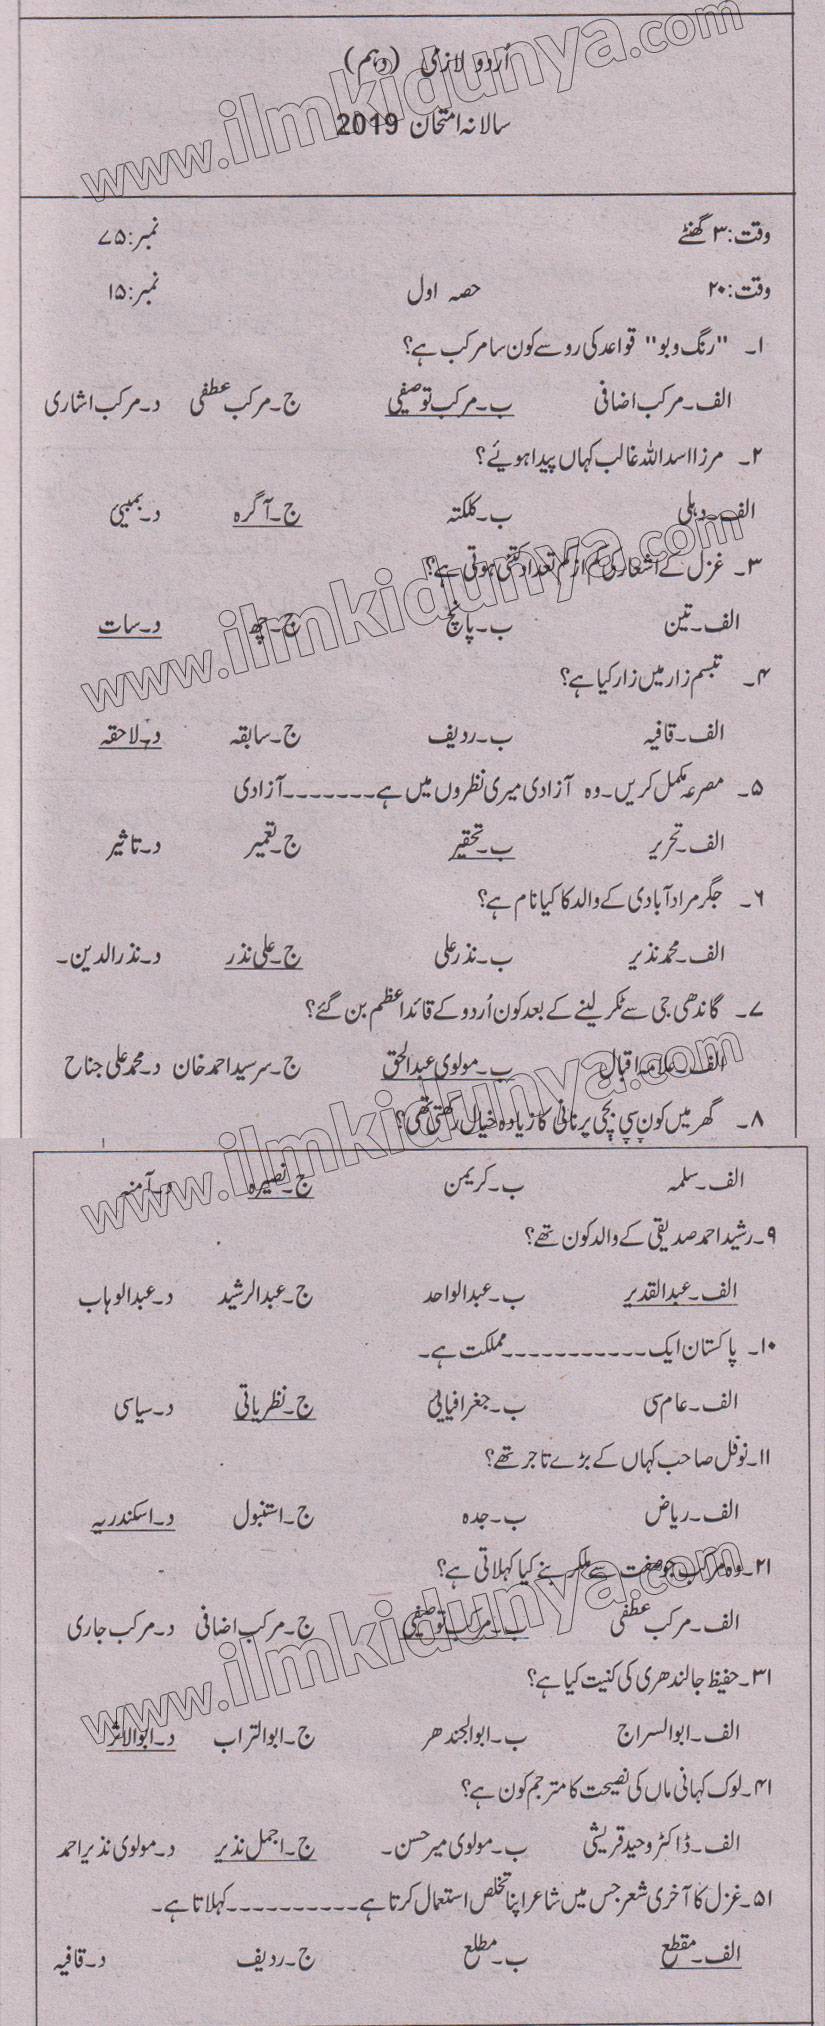 اُردو لازمی (دہم)
سالانہ امتحان 2019
وقت: ۳ گھنٹے نمبر: ۷۵
وقت: ۲۰ حصہ اول نمبر: ۱۵
۱۔ "رنگ و بو" قواعد کی رو سے کون سا مرکب ہے؟
الف۔ مرکب اضافی ب۔ مرکب توصیفی ج۔ مرکب عطفی د۔ مرکب اشاری
۲۔ مرزا اسد اللہ غالب کہاں پیدا ہوئے؟
الف۔ دہلی ب۔ کلکتہ ج۔ آگرہ د۔ بمبیئ
۳۔ غزل کے اشعار کی کم از کم تعداد کتنی ہوتی ہے؟
الف۔ تین ب۔ پانچ ج۔ چھ د۔ سات
۴۔ تبسم زار میں زار کیا ہے؟
الف۔ قافیہ ب۔ ردیف ج۔ سابقہ د۔ لاحقہ
۵۔ مصرعہ مکمل کریں۔ وہ آزادی میری نظروں میں ہے ۔۔۔۔۔۔۔ آزادی
الف۔ تحریر ب۔ تحقیر ج۔ تعمیر د۔ تاثیر
۶۔ جگر مراد آبادی کے والد کا کیا نام ہے؟
الف۔ محمد نذیر ب۔ نذر علی ج۔ علی نذر د۔ نذر الدین۔
۷۔ گاندھی جی سے ٹکر لینے کے بعد کون اُردو کے قائد اعظم بن گئے؟
الف۔ علامہ اقبال ب۔ مولوی عبدالحق ج۔ سرسید احمد خان د۔ محمد علی جناح
۸۔ گھر میں کون سی بچی پر نانی کا زیادہ خیال رکھتی تھی؟
الف۔ سلمہ ب۔ کریمن ج۔ نصیرہ د۔ آمنہ
۹۔ رشید احمد صدیقی کے والد کون تھے؟
الف۔ عبدالقدیر ب۔ عبدالواحد ج۔ عبدالرشید د۔ عبدالوہاب
۱۰۔ پاکستان ایک ۔۔۔۔۔۔۔۔۔۔۔ مملکت ہے۔
الف۔ عام سی ب۔ جغرافیائی ج۔ نظریاتی د۔ سیاسی
۱۱۔ نوفل صاحب کہاں کے بڑے تاجر تھے؟
الف۔ ریاض ب۔ جدہ ج۔ استنبول د۔ اسکندریہ
۲۱۔ وہ مرکب جو صفت سے ملکر بنے کیا کہلاتی ہے؟
الف۔ مرکب عطفی ب۔ مرکب توصیفی ج۔ مرکب اضافی د۔ مرکب جاری
۳۱۔ حفیظ جالندھری کی کنیت کیا ہے؟
الف۔ ابوالسراج ب۔ ابوالجندھر ج۔ ابوالتراب د۔ ابوالاثر
۴۱۔ لوک کہانی ماں کی نصیحت کا مترجم کون ہے؟
الف۔ ڈاکٹر وحید قریشی ب۔ مولوی میر حسن۔ ج۔ اجمل نذیر د۔ مولوی نذیر احمد
۵۱۔ غزل کا آخری شعر جس میں شاعر اپنا تخلص استعمال کرتا ہے ۔۔۔۔۔۔۔۔۔۔ کہلاتا ہے۔
الف۔ مقطع ب۔ مطلع ج۔ ردیف د۔ قافیہ
www.ilmkidunya.com
www.ilmkidunya.com
www.ilmkidunya.com
www.ilmkidunya.com